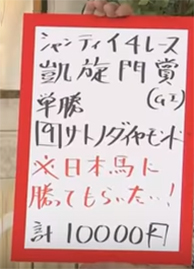 シャンティイ4レース
凱旋門賞
(GI)
単勝
9 サトノダイヤモンド
※日本馬に
勝ってもらいたい!
計10000円